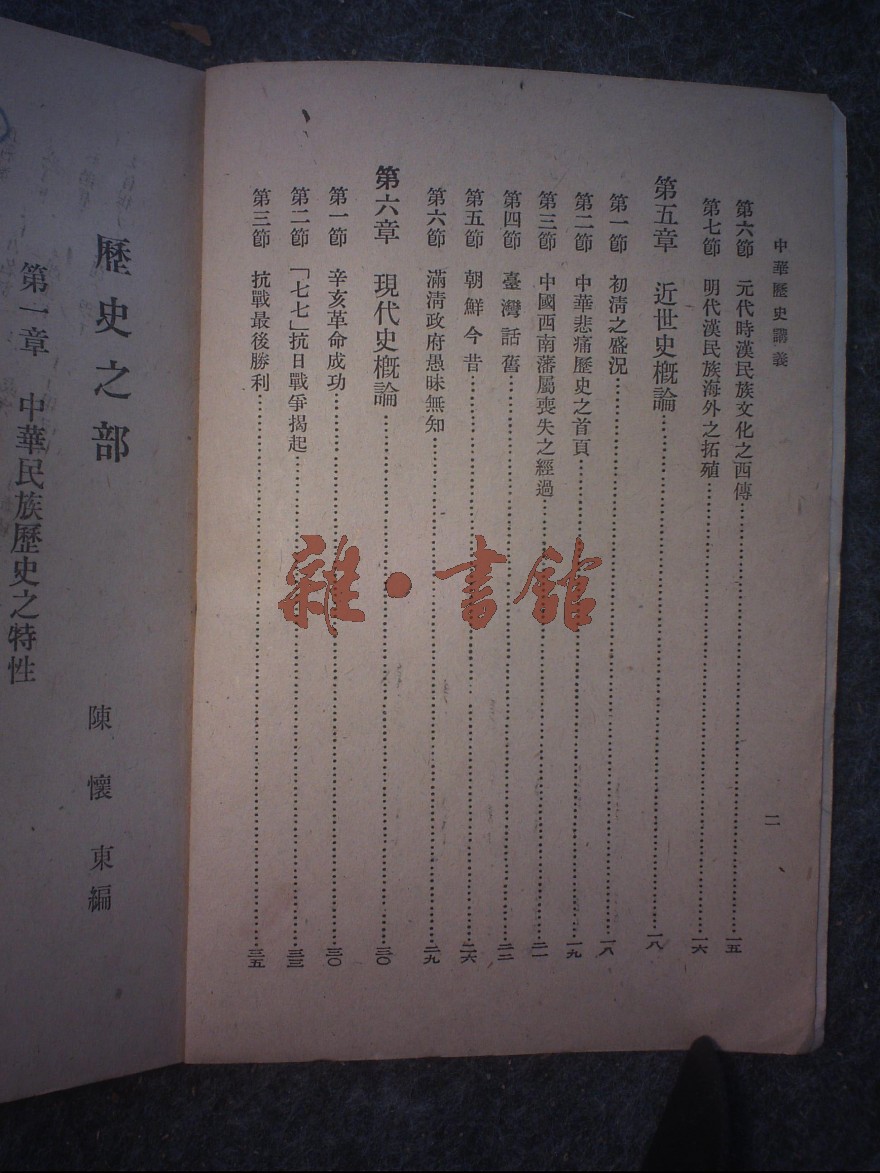 中華歷史講義
二
第六節 元代時漢民族文化之西傳……一五
第七節 明代漢民族海外之拓殖……一六
第五章 近世史概論……一八
第一節 初清之盛況……一八
第二節 中華悲痛歷史之首頁……一九
第三節 中國西南藩屬喪失之經過……二一
第四節 臺灣話舊……二二
第五節 朝鮮今昔……二六
第六節 滿清政府愚昧無知……二九
第六章 現代史概論……三〇
第一節 辛亥革命成功……三〇
第二節 「七七」抗日戰爭揭起……三三
第三節 抗戰最後勝利……三五
歷史之部
陳懷東編
第一章 中華民族歷史之特性
雜·書館